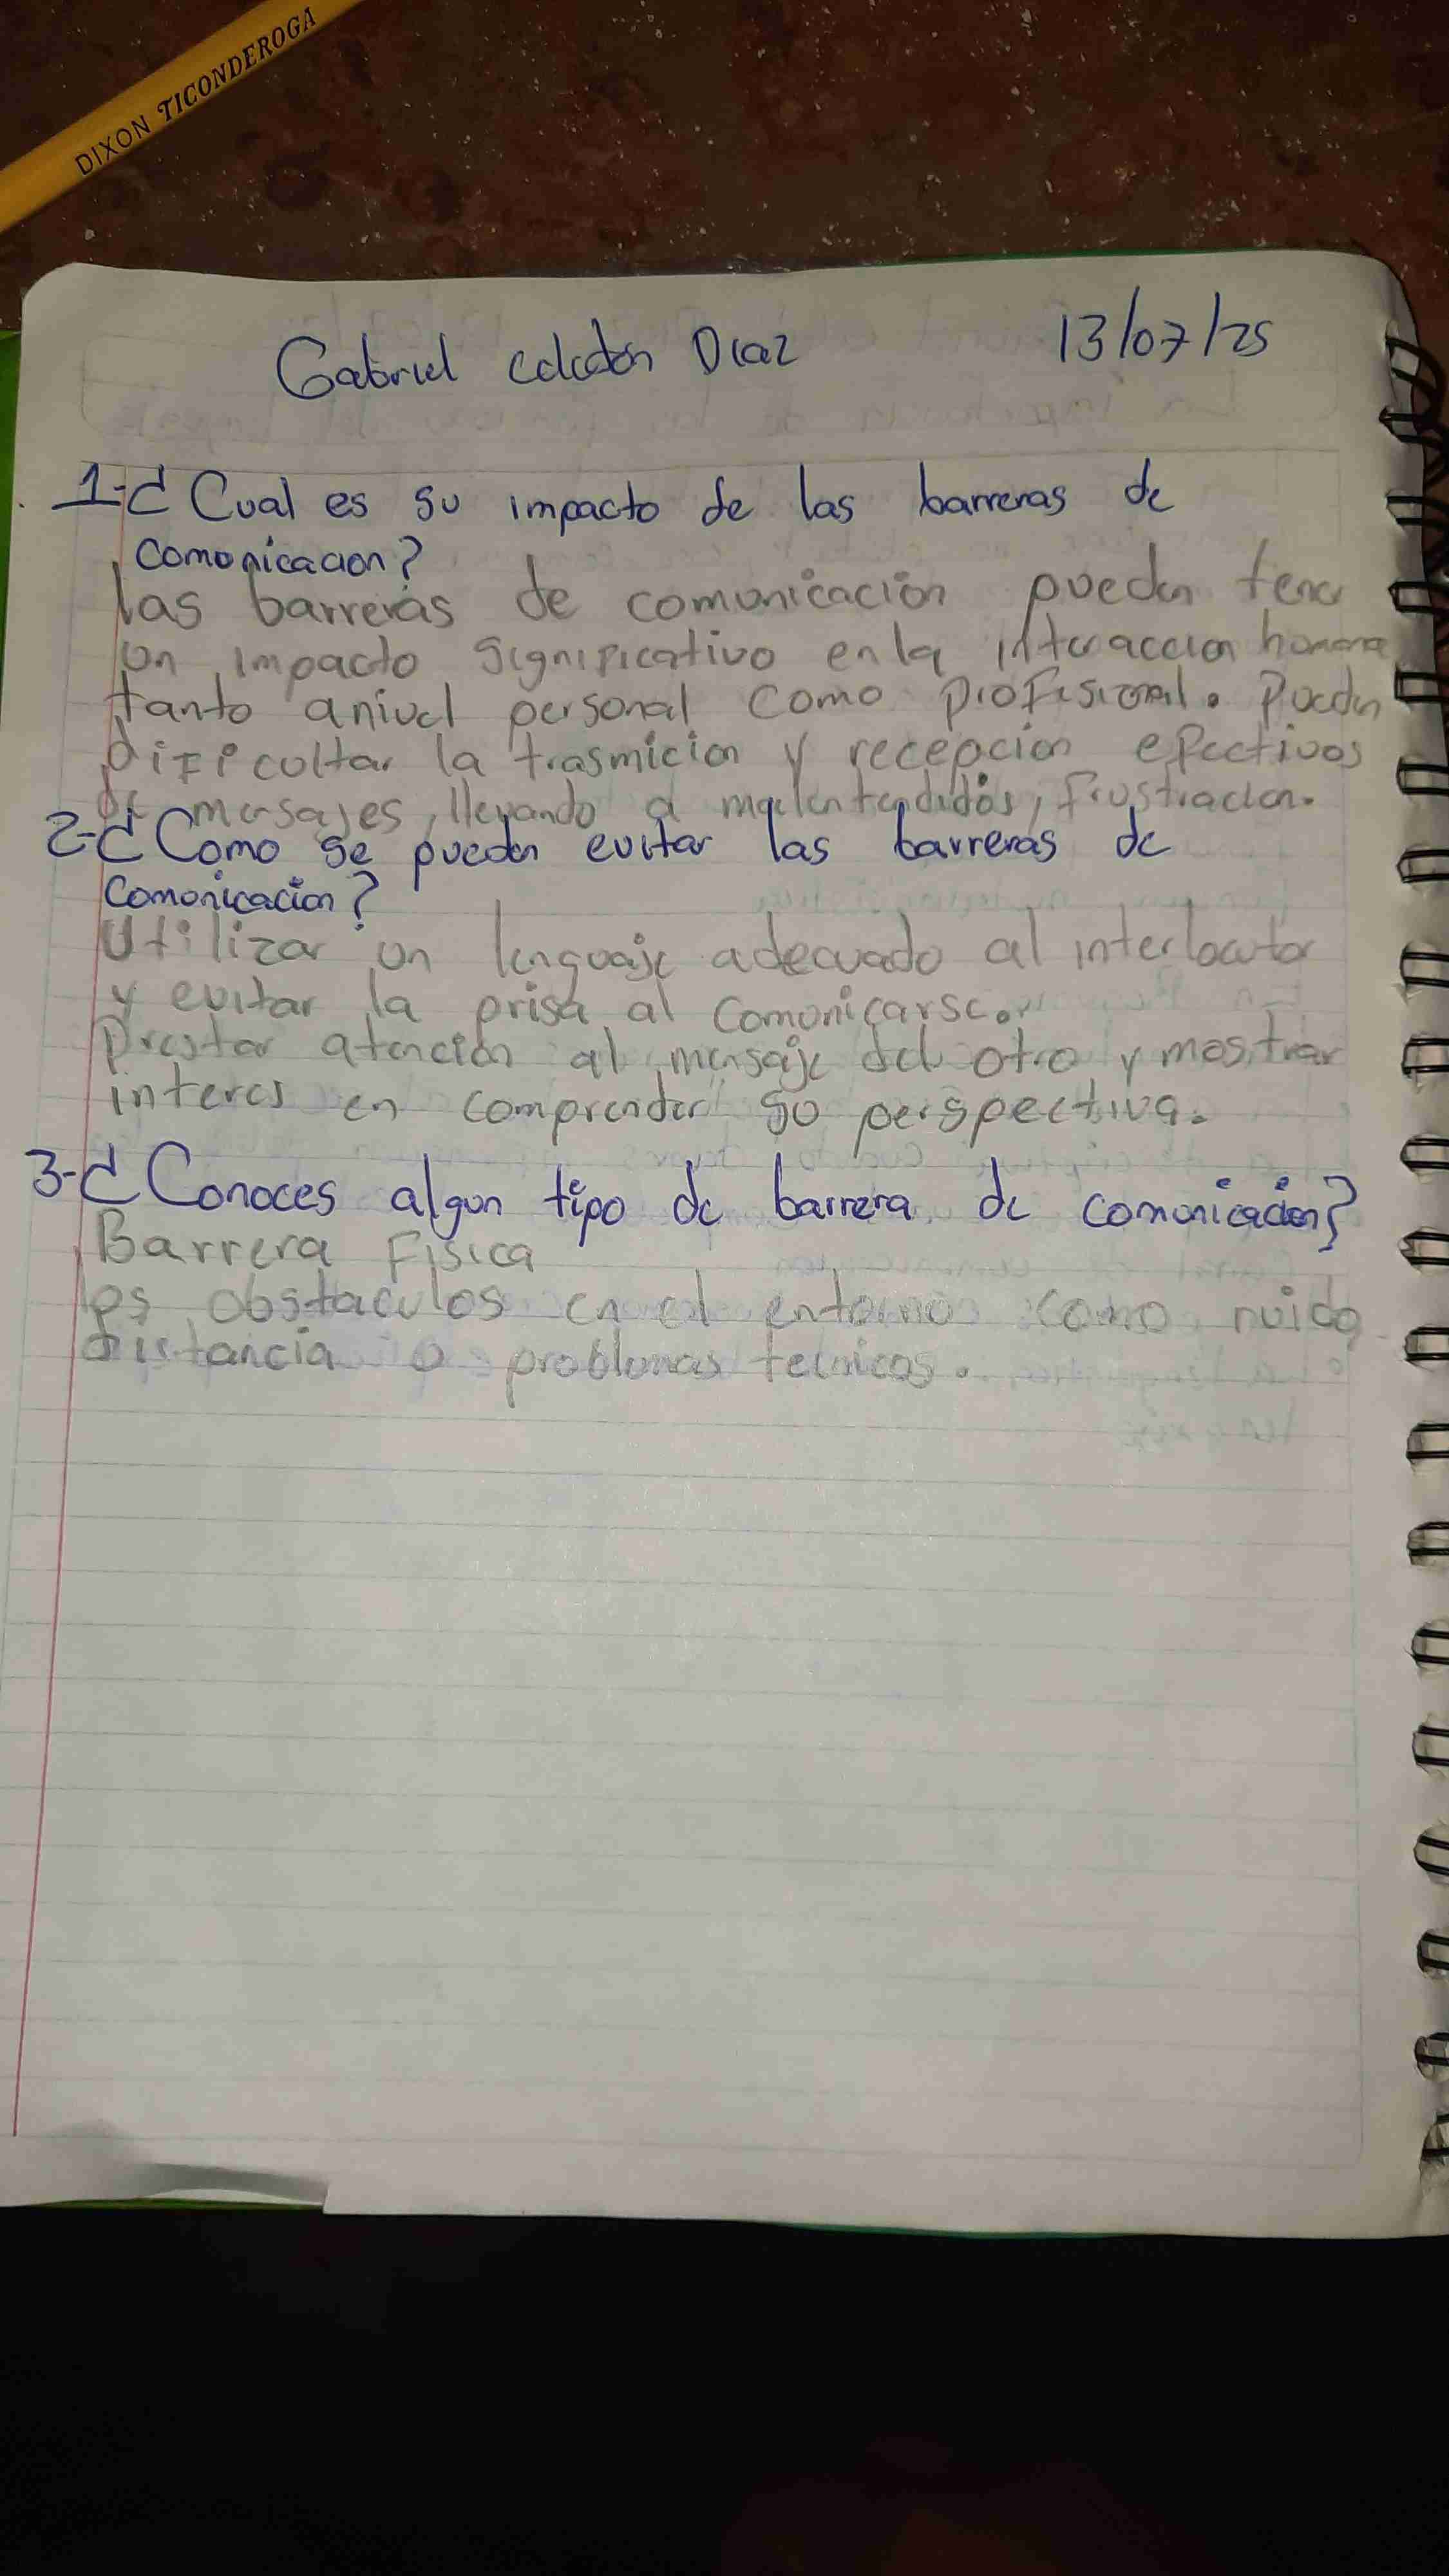 DIXON TICONDEROGA
Gabriel Diaz 13/07/25
1-¿Cual es su impacto de las barreras de
comonicacion?
las barreras de comunicación pueden tener
un impacto significativo en la interaccion humana
tanto a nivel personal como profesional. Pueden
dificultar la trasmicion y recepcion efectivos
de mensajes, llevando a malentendidos, frustracion.
2-¿Como se pueden evitar las barreras de
comonicacion?
Utilizar un lenguaje adecuado al interlocutor
y evitar la prisa al comonicarse.
Prestar atencion al mensaje del otro y mostrar
interes en comprender su perspectiva.
3-¿Conoces algun tipo de barrera de comunicacion?
Barrera Fisica
es obstaculos en el entorno como ruido
distancia o problemas tecnicos.